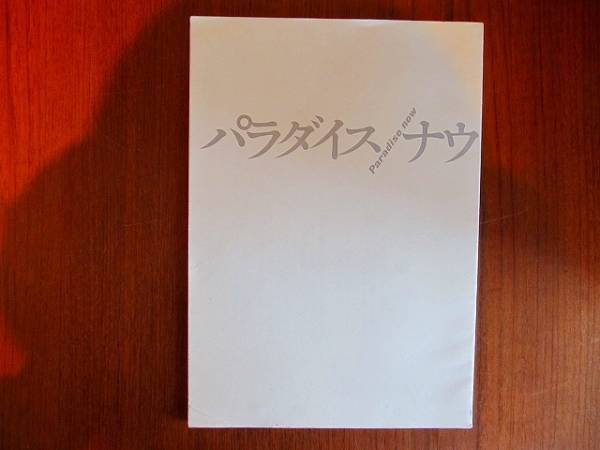 パラダイス ナウ
Paradise now